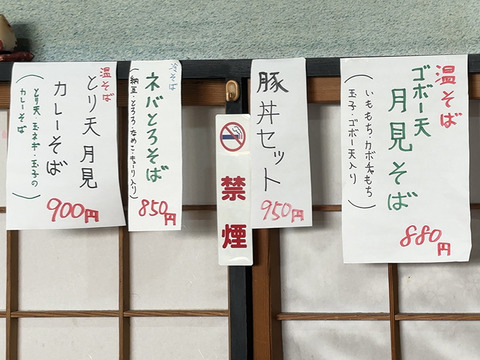 温そば
ゴボー天
月見そば
(いももち・カボチャもち
玉子・ゴボー天入り)
880円
豚丼セット
950円
禁煙
冷そば
ネバとろそば
(納豆・とろろ・なめこ・きゅーり入り)
850円
温そば
とり天月見
カレーそば
(とり天・玉ネギ・玉子の
カレーそば)
900円